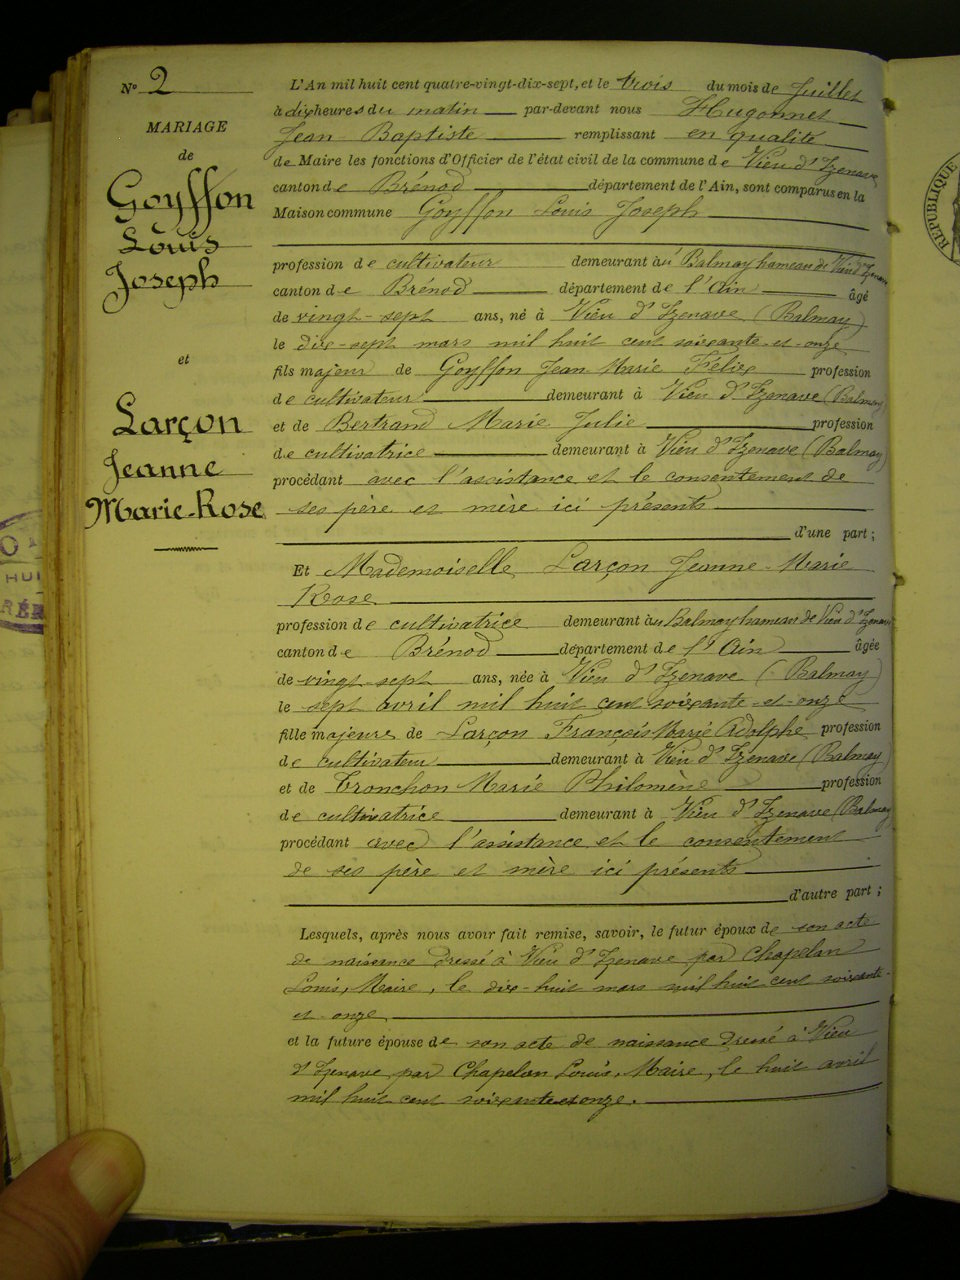 N° 2
MARIAGE
de
Goyffon
Louis
Joseph
et
Larçon
Jeanne
Marie-Rose
L'An mil huit cent quatre-vingt-dix-sept, et le trois du mois de Juillet
à dix heures du matin par-devant nous Hugonnet
Jean Baptiste remplissant en qualité
de Maire les fonctions d'Officier de l'état civil de la commune de Vieu d'Izenave
canton de Brénod département de l'Ain, sont comparus en la
Maison commune Goyffon Louis Joseph
profession de cultivateur demeurant au Balmay hameau de Vieu d'Izenave
canton de Brénod département de l'Ain âgé
de vingt-sept ans, né à Vieu d'Izenave (Balmay)
le dix-sept mars mil huit cent soixante-et-onze
fils majeur de Goyffon Jean Marie Félix profession
de cultivateur demeurant à Vieu d'Izenave (Balmay
et de Bertrand Marie Julie profession
de cultivatrice demeurant à Vieu d'Izenave (Balmay)
procédant avec l'assistance et le consentement de
ses père et mère ici présents
d'une part ;
Et Mademoiselle Larçon Jeanne-Marie
Rose
profession de cultivatrice demeurant au Balmay hameau de Vieu d'Izenave
canton de Brénod département de l'Ain âgée
de vingt-sept ans, née à Vieu d'Izenave (Balmay)
le sept avril mil huit cent soixante-et-onze
fille majeure de Larçon François Marie Adolphe profession
de cultivateur demeurant à Vieu d'Izenave (Balmay
et de Tronchon Marie Philomène profession
de cultivatrice demeurant à Vieu d'Izenave (Balmay
procédant avec l'assistance et le consentement
de ses père et mère ici présents
d'autre part ;
Lesquels, après nous avoir fait remise, savoir, le futur époux de son acte
de naissance dressé à Vieu d'Izenave par Chapelan
Louis, Maire, le dix-huit mars mil huit cent soixante-
et-onze
et la future épouse de son acte de naissance dressé à Vieu
d'Izenave par Chapelan Louis, Maire, le huit avril
mil huit cent soixante et onze.
RÉPUBLIQUE